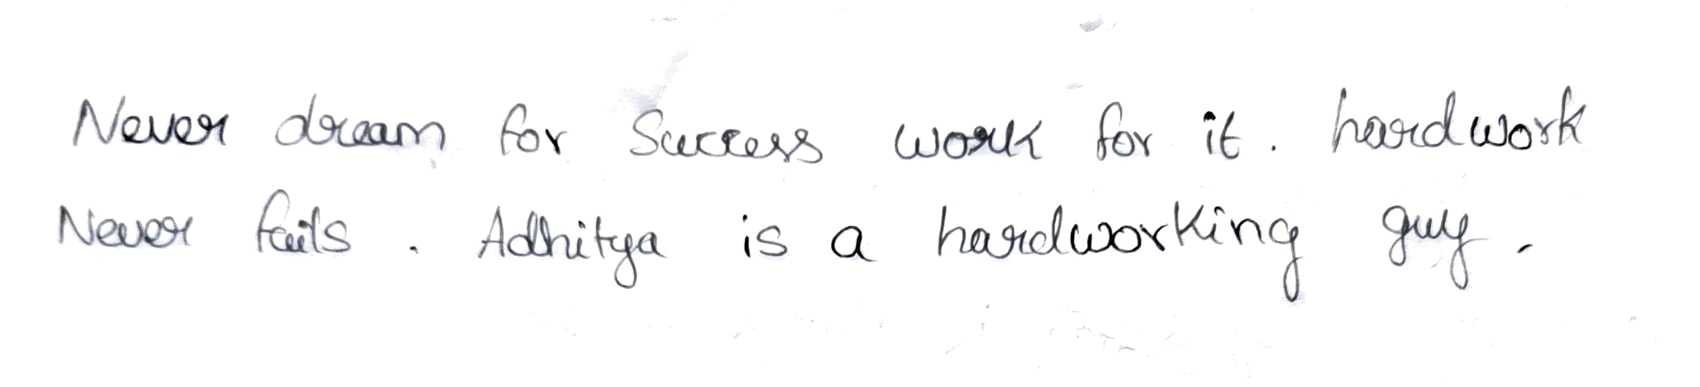 Never dream for Success work for it. hardwork
Never fails. Adhitya is a hardworking guy.